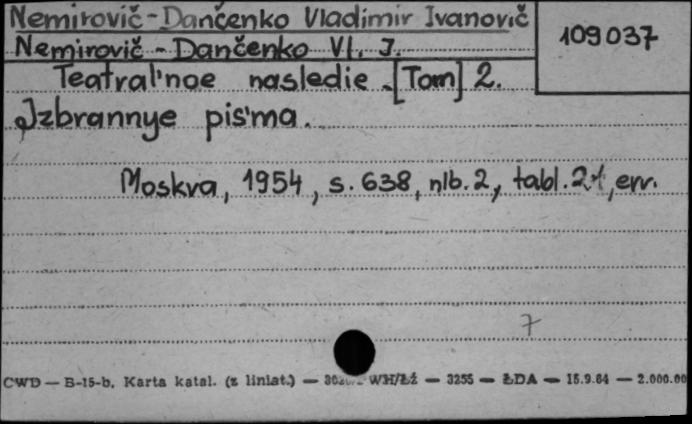 Nemirovič-Dančenko Vladimir Ivanovič
109037
Nemirovič-Dančenko Vl. I.
Teatral'noe nasledie. [Tom] 2.
Izbrannye pis'ma.
Moskva, 1954, s. 638, nlb. 2, tabl. 21, err.
7
CWD — B-15-b, Karta katal. (z liniat.) — WH/Łź — 3255 — ŁDA — 15.9.64 — 2.000.00